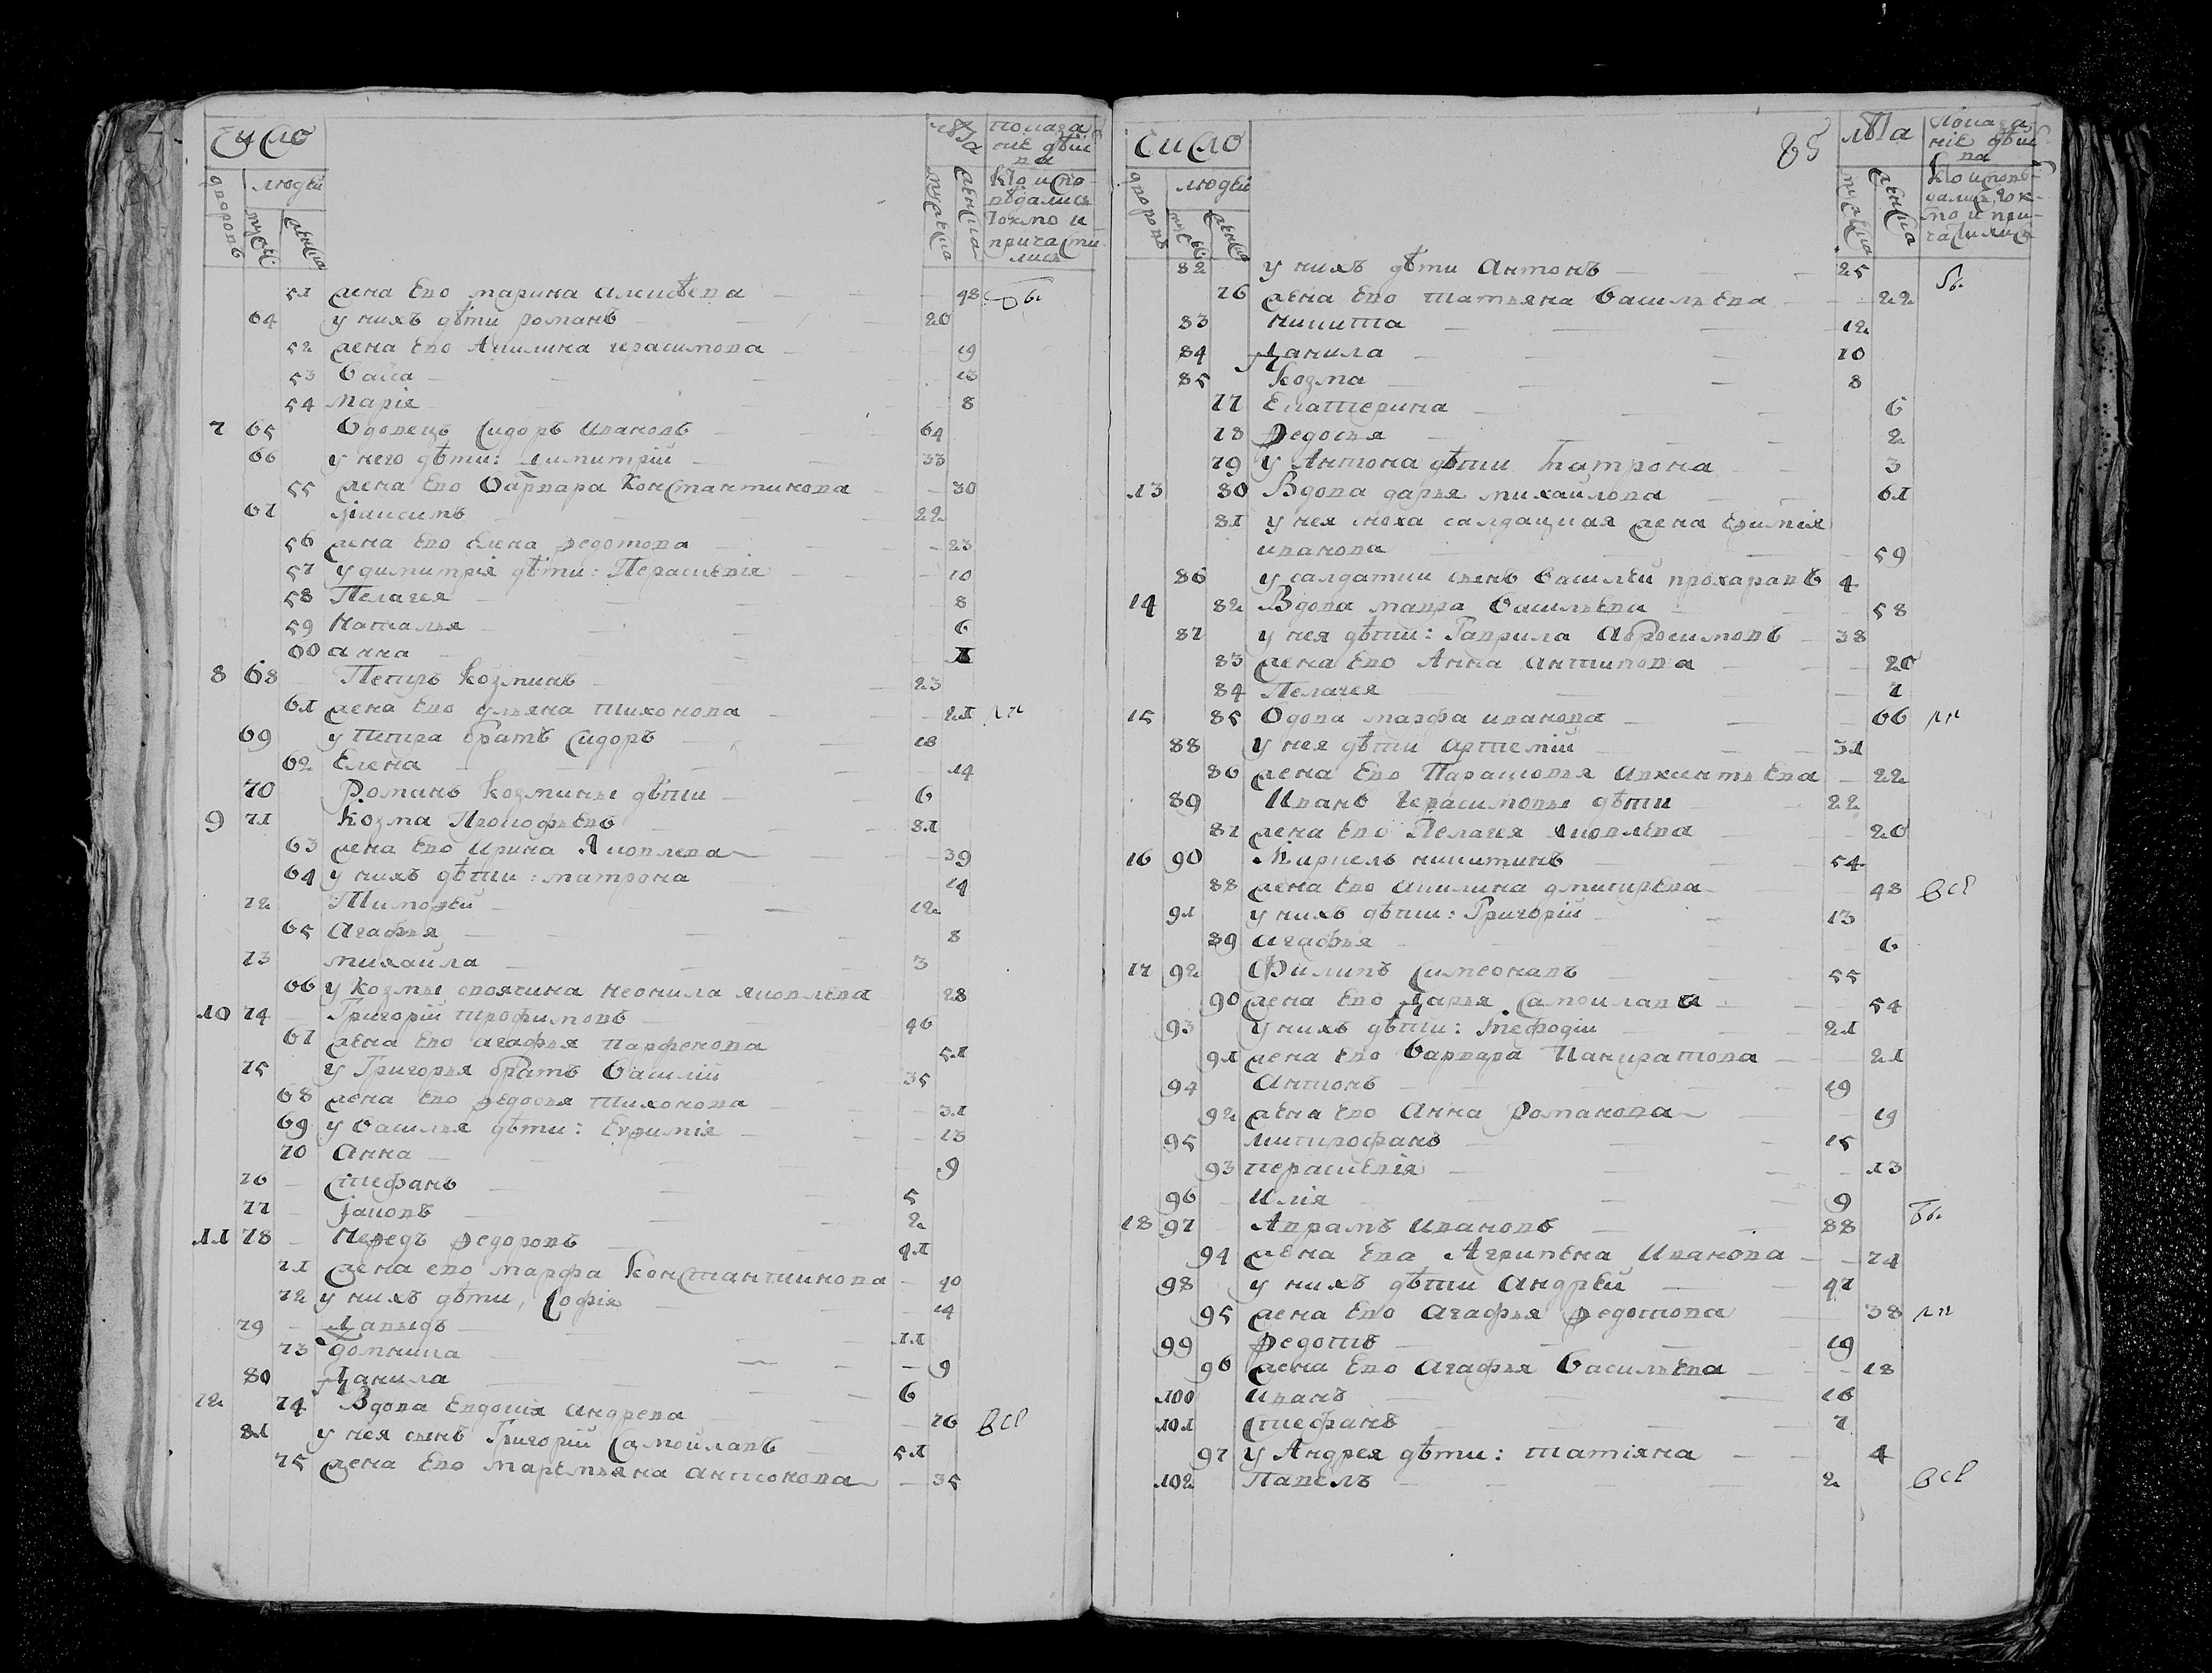 число
дворовъ
людей
мужескъ
женска
лѣта
мужеска
женска
показа
ніе дѣйс
ва
кто испо
вѣдалися
токмо и
причасти
лися
51 жена ево марина алеѣева 48
64 у нихъ дѣти романъ 20
52 жена ево Акилина герасимова 19
53 Васа 13
54 марія 8
7 65 Вдовецъ Сидоръ ивановъ 64
66 у него дѣти: димитрій 33
55 жена ево Варвара Константинова 30
67 Максимъ 22
56 жена ево Елена федотова 23
57 у димитрія дѣти: Перасиевія 10
58 Пелагея 8
59 наталья 6
60 анна 1
8 68 Петръ козминъ 23
61 жена ево ульяна тихонова 21
69 у петра братъ Сидоръ 18
62 Елена 14
70 Романъ козмины дѣти 6
9 71 Козма Прокофьевъ 31
63 жена ево Ирина Яковлева 39
64 у нихъ дѣти: матрона 14
72 Тимофей 12
65 агафья 8
73 михаила 3
66 у козмы своячина неонила яковлева 28
10 74 Григорій трофимовъ 46
67 жена ево агафья парфенова 51
75 у Григорья братъ Василій 35
68 жена ево федосья тихонова 31
69 у василья дѣти: Ефимія 13
70 Анна 9
76 Стефанъ 5
77 Іаковъ 2
11 78 Нефедъ федоровъ 41
71 жена ево марфа константинова 40
72 у нихъ дѣти, Софія 14
79 Давыдъ 11
73 домника 9
80 Данила 6
12 74 Вдова Евдокія андреева 76 всѣ
81 у нея сынъ Григорій Самойлавъ 51
75 жена ево маремьяна антонова 35
85
число
дворовъ
людей
мужескъ
женска
лѣта
мужеска
женска
показа
ніе дѣйс
ва
кто исповѣ
дались, ток
мо и при
частились
82 у нихъ дѣти антонъ 25
76 жена ево татьяна васильева 22
83 никита 12
84 Данила 10
85 козма 8
77 екатерина 6
78 федосья 2
79 у Антона дѣти матрона 3
13 80 Вдова дарья михайлова 61
81 у нея сноха салдацкая жена Ефимія
иванова 59
86 у салдатки сынъ василей прохаравъ 4
14 82 Вдова мавра васильева 58
87 у нея дѣти: Гаврила абросимовъ 38
83 жена ево Анна антипова 20
84 Пелагея 7
15 85 Вдова марфа иванова 66
88 у нея дѣти артемій 31
86 жена ево Парасковья авксентьева 22
89 Иванъ герасимовы дѣти 22
87 жена ево Пелагея яковлева 20
16 90 Кирпелъ никитинъ 54
88 жена ево акилина дмитрева 48 всѣ
91 у нихъ дѣти: Григорій 13
89 агафья 6
17 92 Филипъ Симеонавъ 55
90 жена ево Дарья Самоилава 54
93 у нихъ дѣти: мефодій 21
91 жена ево варвара панкратова 21
94 антонъ 19
92 жена ево Анна романова 19
95 митрофанъ 15
93 перасиевія 13
96 илія 9
18 97 Аврамъ ивановъ 88
94 жена ева Агрипена иванова 74
98 у нихъ дѣти андрѣй 47
95 жена ево агафья федотова 38
99 федотъ 19
96 жена ево агафья васильева 18
100 иванъ 16
101 Стефанъ 7
97 у Андрея дѣти: татіяна 4
102 Павелъ 2 всѣ